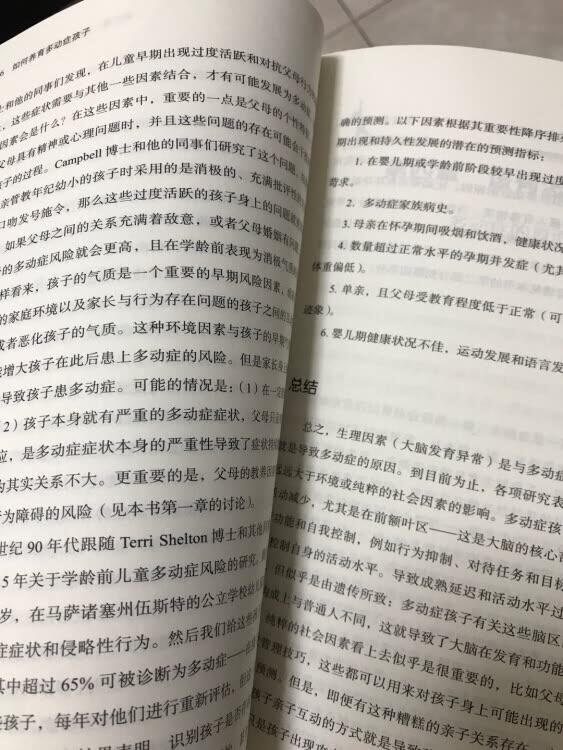 6 如何养育多动症孩子
士和他的同事们发现，在儿童早期出现过度活跃和对抗父母行为
，这些症状需要与其他一些因素结合，才有可能发展为多动症
因素会是什么？在这些因素中，重要的一点是父母的个性特
父母具有精神或心理问题时，并且这些问题的存在可能会干
孩子的过程。Campbell 博士和他的同事们研究了这个问题，
亲管教年纪幼小的孩子时采用的是消极的、充满批评性的
口吻发号施令，那么这些过度活跃的孩子身上的问题就
。如果父母之间的关系充满着敌意，或者父母婚姻有问
的多动症风险就会更高，且在学龄前表现为消极气质
样看来，孩子的气质是一个重要的早期风险因素，
的家庭环境以及家长与行为存在问题的孩子之间的
或者恶化孩子的气质。这种环境因素与孩子的早期气
能增大孩子在此后患上多动症的风险。但是家长身上
导致孩子患多动症。可能的情况是：（1）在一定
（2）孩子本身就有严重的多动症症状，父母只
应，是多动症症状本身的严重性导致了症状持
的其实关系不大。更重要的是，父母的教养
行为障碍的风险（见本书第一章的讨论）。
世纪 90 年代跟随 Terri Shelton 博士和其他
5 年关于学龄前儿童多动症风险的研究，
岁，在马萨诸塞州伍斯特的公立学校幼儿
症症状和侵略性行为。然后我们给这些
其中超过 65% 可被诊断为多动症——在
孩子，每年对他们进行重新评估，
表明，识别孩子是否
确的预测。以下因素根据其重要性降序排
期出现和持久性发展的潜在的预测指标：
1. 在婴儿期或学龄前阶段较早出现过度
苛求。
2. 多动症家族病史。
3. 母亲在怀孕期间吸烟和饮酒，健康状况
4. 数量超过正常水平的孕期并发症（尤其
体重偏低）。
5. 单亲，且父母受教育程度低于正常（可
迹象）。
6. 婴儿期健康状况不佳，运动发展和语言发
总结
总之，生理因素（大脑发育异常）是与多动症
就是导致多动症的原因。到目前为止，各项研究表
远大于环境或纯粹的社会因素的影响。多动症孩
动减少，尤其是在前额叶区——这是大脑的核心部
功能和自我控制，例如行为抑制、对待任务和目标
控制自身的活动水平。导致成熟延迟和活动水平过
但似乎是由遗传所致：多动症孩子有关这些脑区
或上与普通人不同，这就导致了大脑在发育和功能
纯粹的社会因素看上去似乎是很重要的，比如父母
管理技巧，这些都可以用来对孩子身上可能出现的
预测。但是，即便有这种糟糕的亲子关系存在，
孩子亲子互动的方式就是导致
孩子出现攻